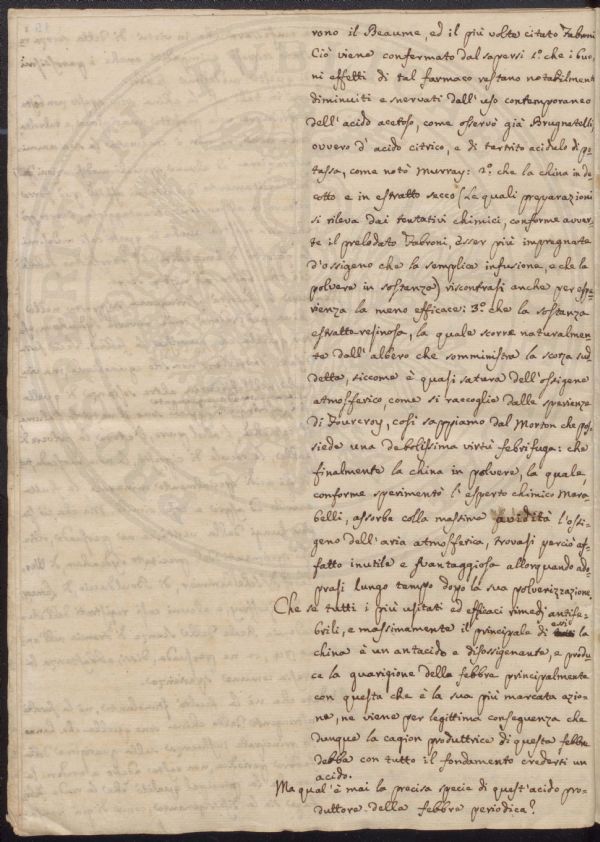 rono il Beaume, ed il più volte citato Fabroni.
Ciò viene confermato dal sapersi 1.º che i buo¬
ni effetti di tal farmaco restano notabilment
diminuiti e snervati dall'uso contemporaneo
dell'acido acetoso, come osservò già Brugnatelli,
ovvero d'acido citrico, e di tartrito acidulo di po¬
tassa, come notò Murray: 2.º che la china in de
cotto e in estratto secco (Le quali preparazioni
si rileva dai tentativi chimici, conforme avver¬
te il prelodato Fabroni, esser più impregnate
d'ossigeno che la semplice infusione, e che la
polvere in sostanza) riscontrasi anche per espe¬
rienza la meno efficace: 3.º che la sostanza
estratto-resinosa, la quale scorre naturalmen¬
te dall'albero che somministra la scorza sud¬
detta, siccome è quasi satura dell'ossigene
atmosferico, come si raccoglie dalle sperienze
di Fourcroy, così sappiamo dal Morton che pos¬
siede una debolissima virtù febrifuga: che
finalmente la china in polvere, la quale,
conforme sperimentò l'esperto chimico Mara
belli, assorbe colla massima avidità l'ossi¬
geno dell'aria atmosferica, trovasi perciò af¬
fatto inutile e svantaggiosa allorquando ado¬
prasi lungo tempo dopo la sua polverizzazione.
Che se tutti i più usitati ed efficaci rimedj antife¬
brili, e massimamente il principale di essi la
china è un antacido e disossigenante, e produ¬
ce la guarigione della febbre principalmente
con questa che è la sua più marcata azio
ne, ne viene per legittima conseguenza che
dunque la cagion produttrice di questa febbre
debba con tutto il fondamento credersi un
acido.
Ma qual'è mai la precisa specie di quest'acido pro¬
duttore della febbre periodica?